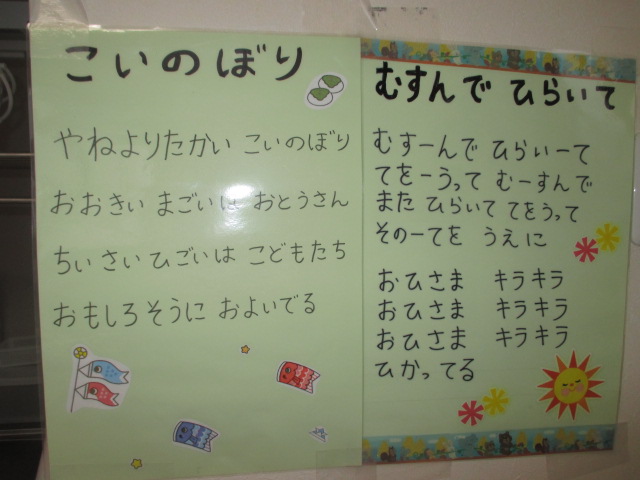 こいのぼり
やねよりたかい こいのぼり
おおきい まごいは おとうさん
ちぃさい ひごいは こどもたち
おもしろそうに およいでる
むすんで ひらいて
むすーんで ひらいーて
てをーうって むーすんで
また ひらいて てをうって
そのーてを うえに
おひさま キラキラ
おひさま キラキラ
おひさま キラキラ
ひかってる